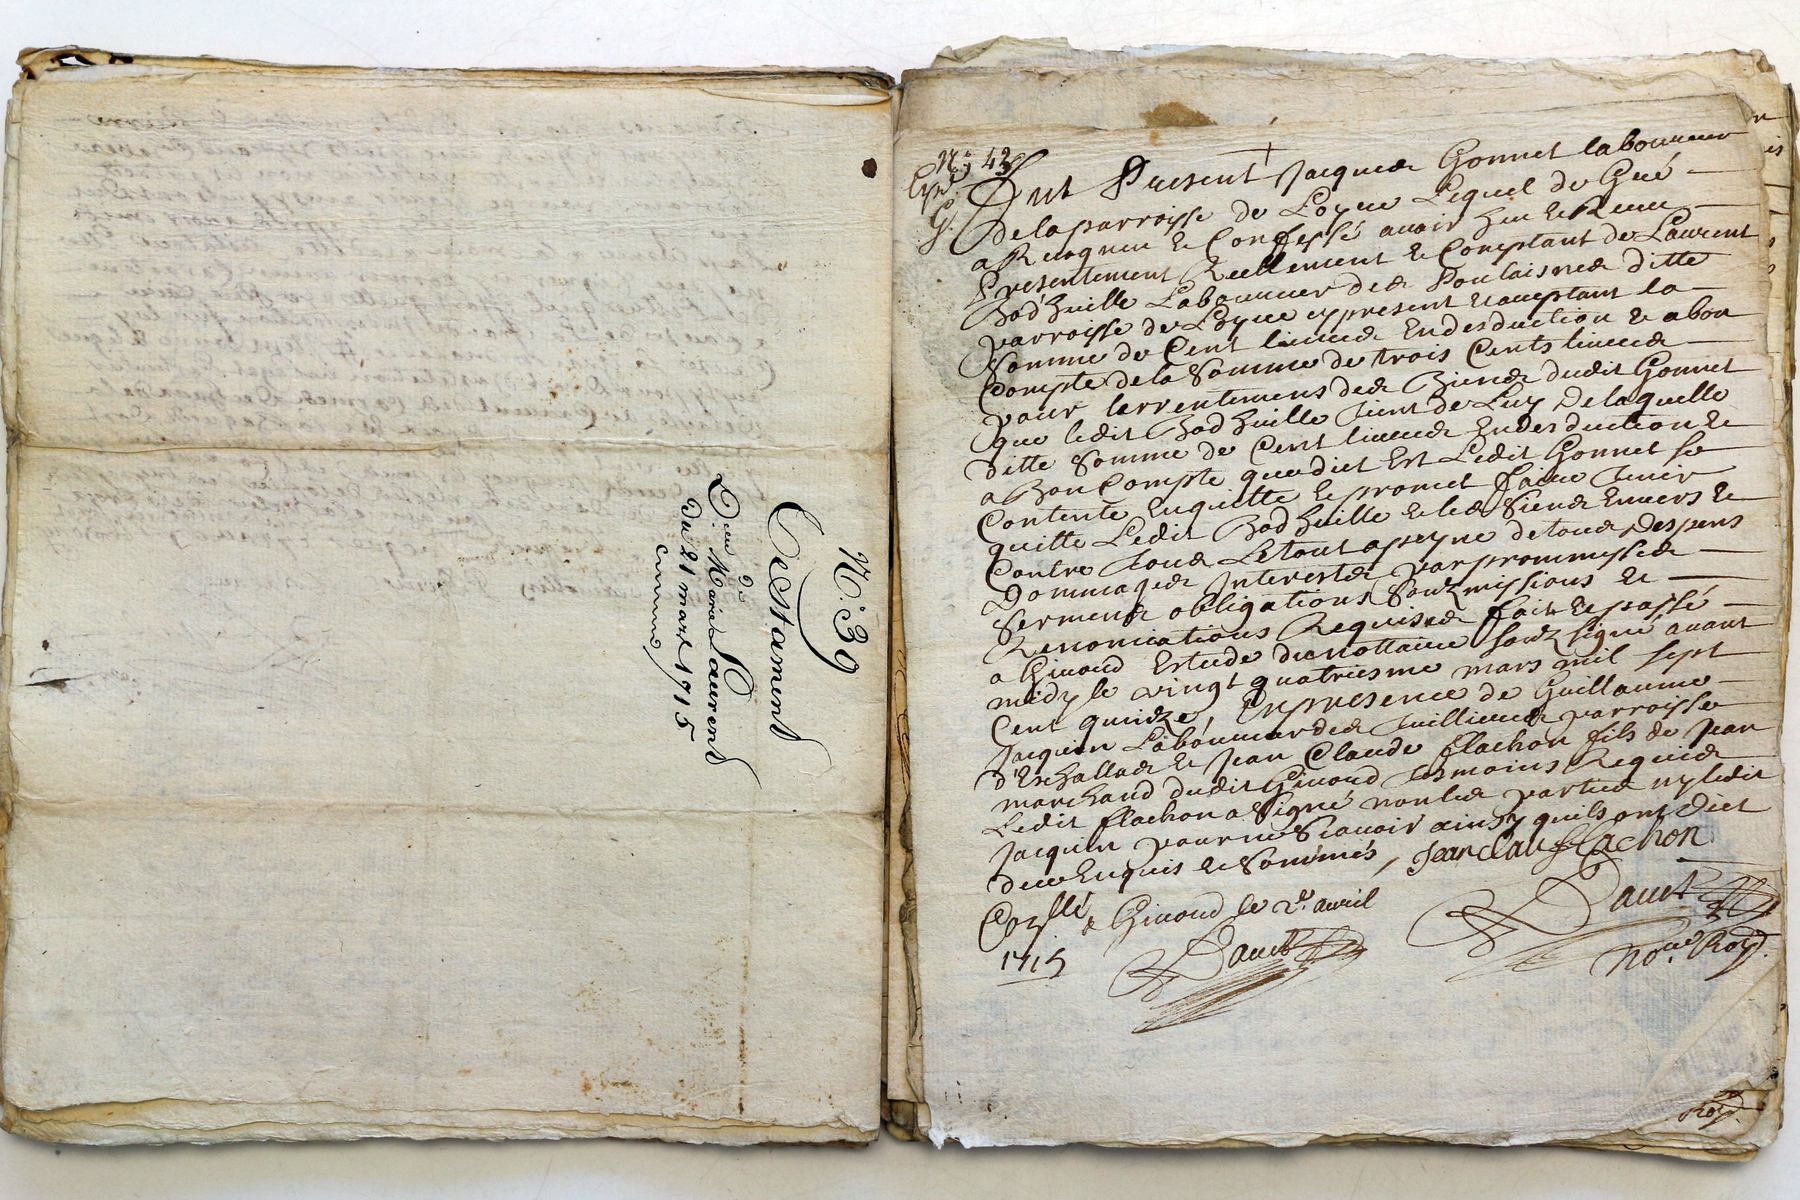 N.° 39
Testament
de
D.e Marie Laurend
du 21 mars 1715
N.° 42
Exp.é
G.
Fut Present Jacques Gonnet laboureur
de la parroisse de Loyre Lequel de Gré
a Recognu & Confessé avoir heu & Receu
Presentement Reellement & Comptant de Laurent
Badhuille Laboureur des Poulaisnes ditte
parroisse de Loyre cy present & aceptant la
Somme de Cent livres En desduction & a bon
Compte de la Somme de trois Cents livres
pour larrentemens des Biens dudit Gonnet
que ledit Badhuille tient de Luy De laquelle
ditte Somme de Cent livres En desduction &
a Bon Compte que dict Est Ledit Gonnet se
Contente En quitte & promet faire tenir
quitte Ledit Badhuille & les Siens Envers &
Contre tous Le tout a peyne de tous despens
Dommages Interests par prommisses
Serments obligations Soubzmissions &
Renonciations Requises fait & passé
a Givord Estude du nottaire soubz signé avant
midy le vingt quatriesme mars mil sept
Cent quinze, En presence de Guillaume
Jacquin Laboureur des parroisse
d'Eschallas & Jean Claude fflachon fils de Jean
marchand dudit Givord tesmoins Requis
Ledit fflachon a Signé non les parties ny ledit
Jacquin pour ne Scavoir ainsy quils ont dict
de ce Enquis & Sommés, Jean Clau fflachon
Con.llé a Givord le 2.e avril
1715
No.re Roy.